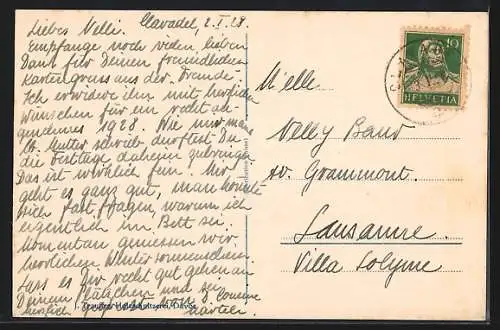 Liebes Nelli. Clavadel, 2. I. 28.
Empfange noch vielen lieben
Dank für Deinen freundlichen
Kartengruss aus der Fremde.
Ich erwidere ihn mit herzlichen
Wünschen für ein recht an-
genehmes 1928. Wie mir
Mutter schrieb durftest Du
die Festtage daheim zubringen.
Das ist wirklich fein. Mir
geht es ganz gut, man könnte
sich fast fragen, warum ich
eigentlich im Bett sei.
Momentan geniessen wir
herrlichen Wintersonnenschein.
Lass es Dir recht gut gehen an
Deinem Plätzchen und sei
herzlich gegrüsst von
HELVETIA
10
M'elle
Nelly Baur
av. Grammont.
Lausanne.
Villa Solyme